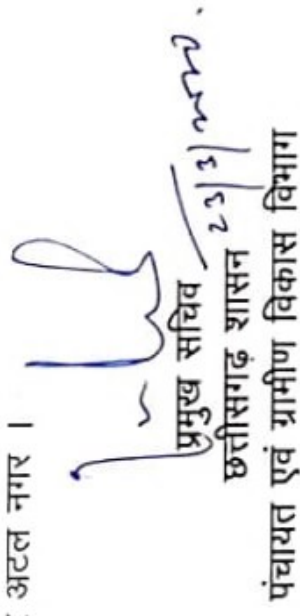 अटल नगर ।
23/3/
प्रमुख सचिव
छत्तीसगढ़ शासन
पंचायत एवं ग्रामीण विकास विभाग